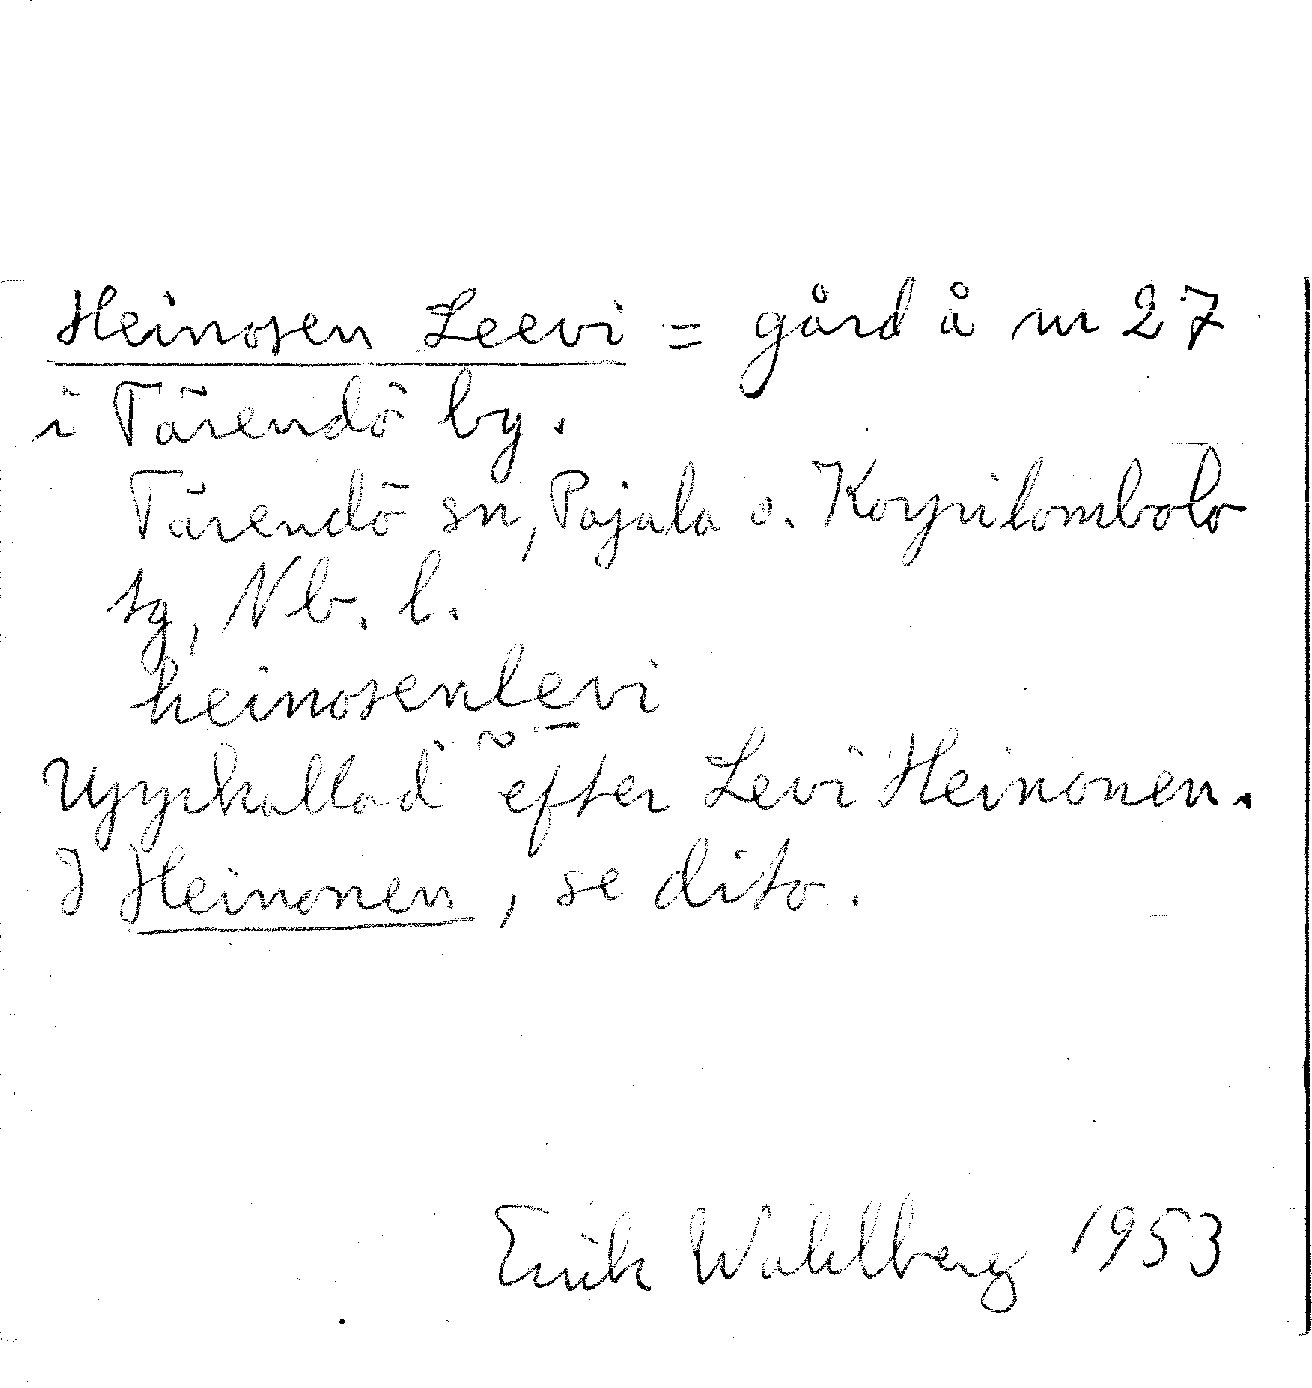 Heinosen Leevi = gård å nr 27
i Tärendö by.
Tärendö sn, Pajala o. Korpilombolo
tg, Nb. l.
heinosenlevi
Uppkallad efter Levi Heinonen.
I Heinonen, se dito.
Erik Wahlberg 1953